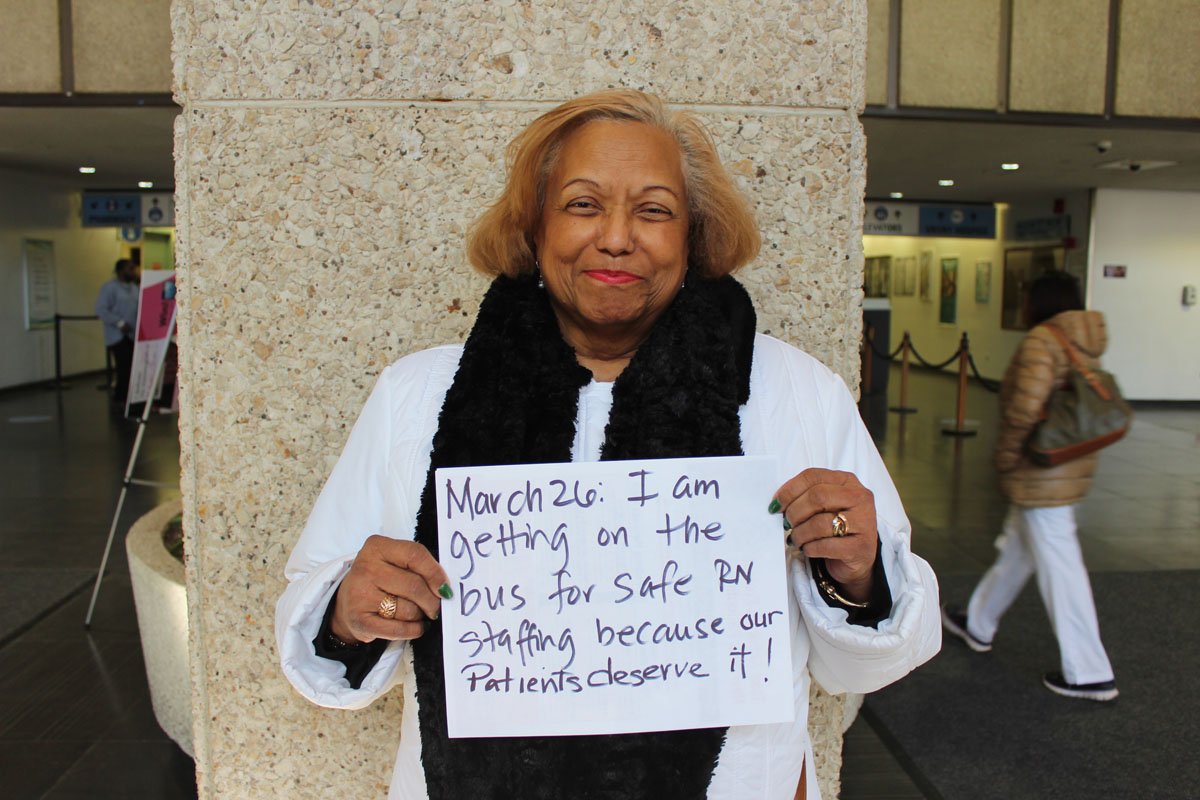 PHARMACY
ELEVATORS
March 26: I am
getting on the
bus for safe RN
staffing because our
Patients deserve it!